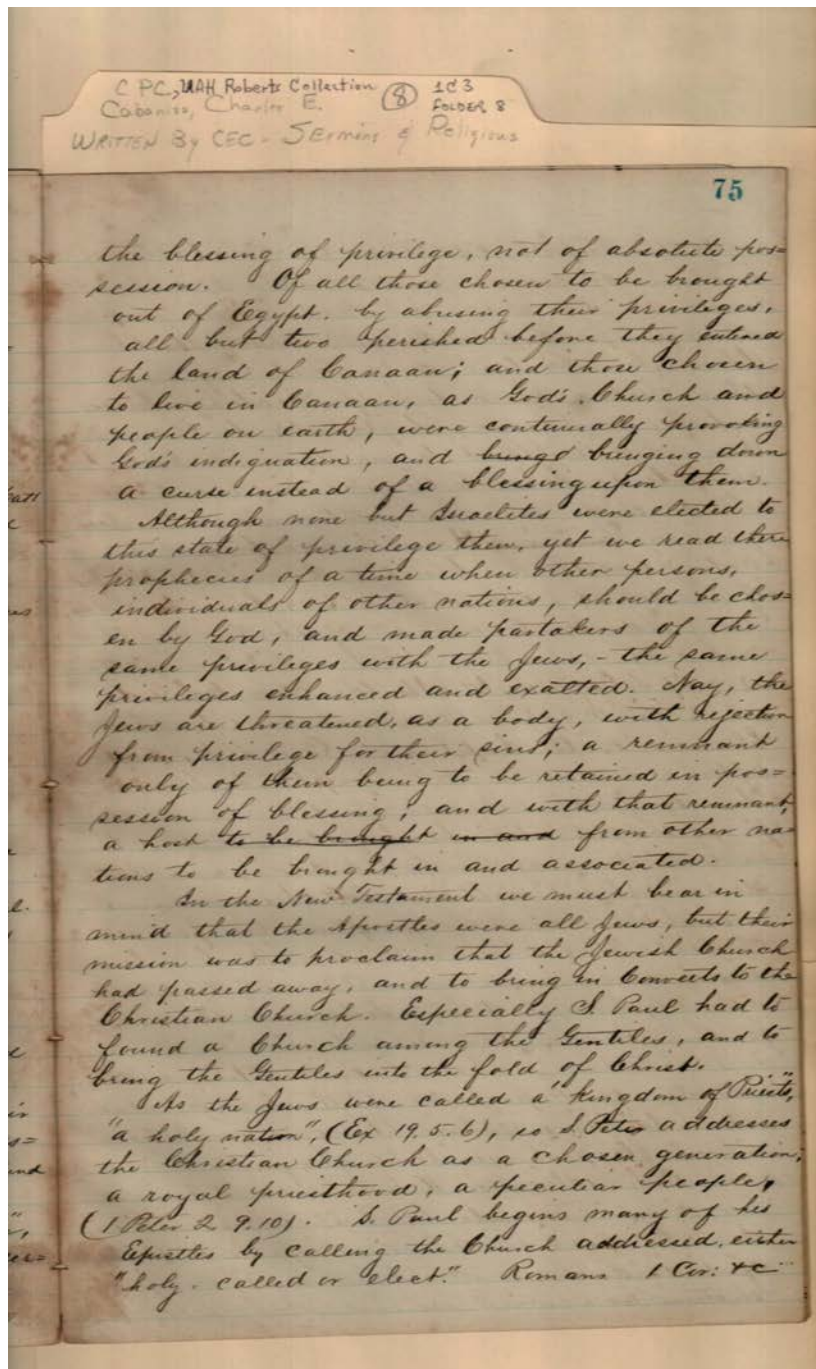 C PC, UAH Roberts Collection 8 1 of 3
Cabaniss, Charles E. FOLDER 8
WRITTEN By CEC - SErmons & Religious
75
the blessing of privilege, not of absolute pos=
session. Of all those chosen to be brought
out of Egypt. by abusing their privileges,
all but two perished before they entered
the land of Canaan; and those chosen
to live in Canaan, as God's Church and
people on earth, were continually provoking
God's indignation, and bringing down
a curse instead of a blessing upon them.
Although none but Israelites were elected to
this state of privilege then, yet we read there
prophecies of a time when other persons,
individuals of other nations, should be chos=
en by God, and made partakers of the
same privileges with the Jews, - the same
privileges enhanced and exalted. Nay, the
Jews are threatened, as a body, with rejection
from privilege for their sins; a remnant
only of them being to be retained in pos=
session of blessing; and with that remnant,
a host to be brought in and from other na=
tions to be brought in and associated.
In the New Testament we must bear in
mind that the Apostles were all Jews, but their
mission was to proclaim that the Jewish Church
had passed away, and to bring in Converts to the
Christian Church. Especially S. Paul had to
found a Church among the Gentiles, and to
bring the Gentiles into the fold of Christ.
As the Jews were called a "kingdom of Priests,"
"a holy nation", (Ex 19.5.6), so S. Peter addresses
the Christian Church as a chosen generation,
a royal priesthood, a peculiar people,
(1 Peter 2. 9.10). S. Paul begins many of his
Epistles by calling the Church addressed, either
"holy - called or elect." Romans 1 Cor: &c